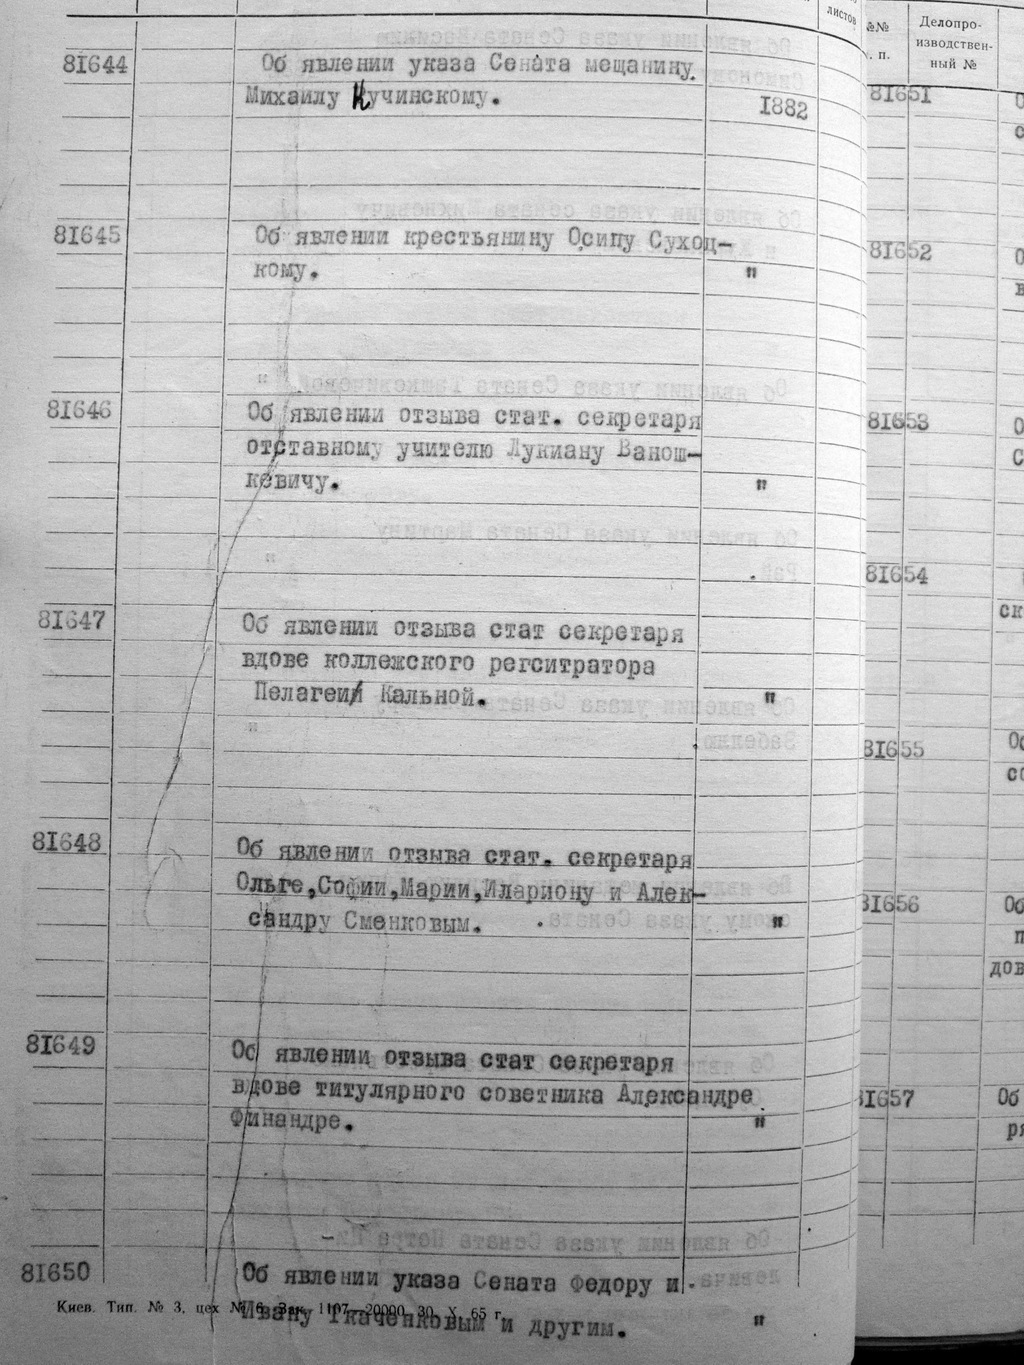 листов
81644 Об явлении указа Сената мещанину
Михаилу Кучинскому. 1882
81645 Об явлении крестьянину Осипу Сухоц-
кому. "
81646 Об явлении отзыва стат. секретаря
отставному учителю Лукиану Ванош-
кевичу. "
81647 Об явлении отзыва стат секретаря
вдове коллежского регситратора
Пелагеи Кальной. "
81648 Об явлении отзыва стат. секретаря
Ольге,Софии,Марии,Илариону и Алек-
сандру Сменковым. "
81649 Об явлении отзыва стат секретаря
вдове титулярного советника Александре
Финандре. "
81650 Об явлении указа Сената Федору и
Ивану Ткаченковым и другим. "
Киев. Тип. № 3, цех № 6. Зак. 1107—20000. 30. X. 65 г.
№№
п. п.
Делопро-
изводствен-
ный №
81651 О
с
81652 О
в
81653 О
С
81654
ск
81655 Об
со
81656 Об
п
дов
81657 Об
ря